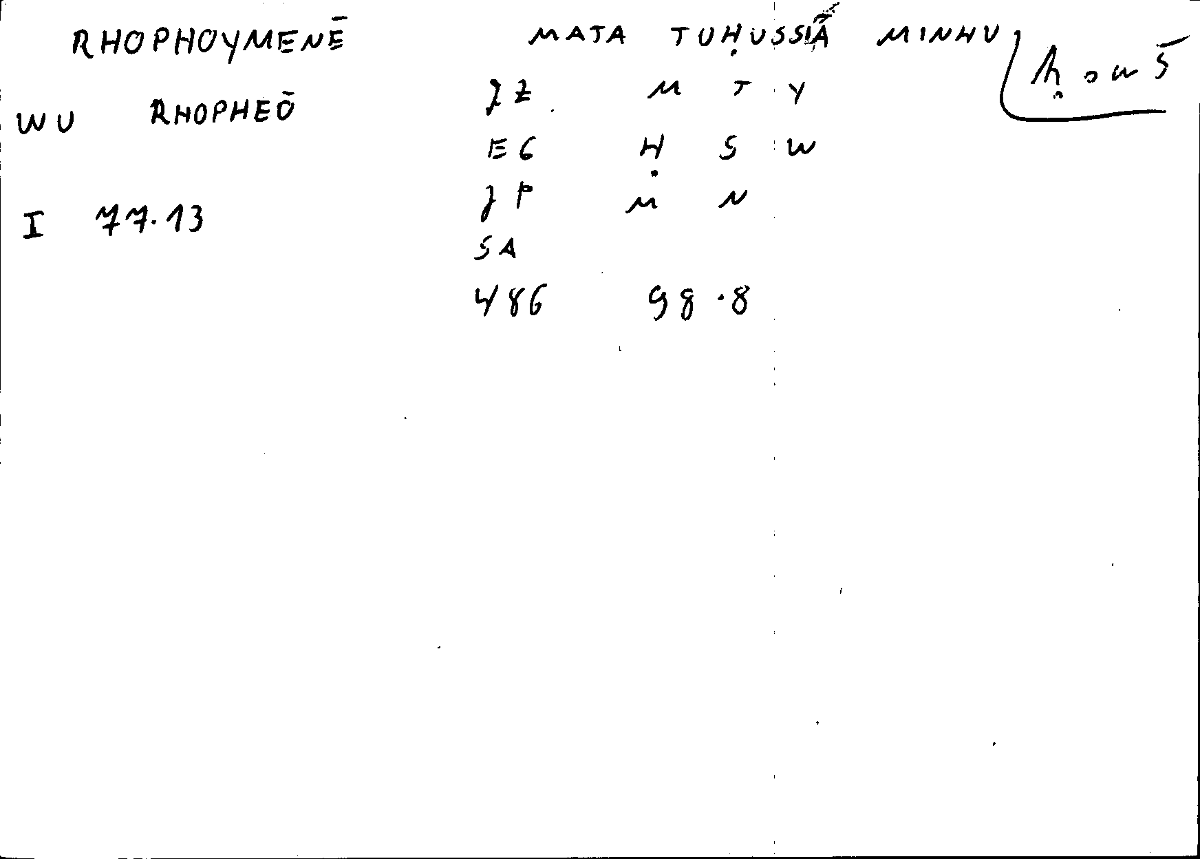 RHOPHOYMENĒ MATA TUḤUSSIĀ MINHU
WU RHOPHEŌ JZ M T Y
EG Ḥ S W
I 77.13 JP M N
SA
486 98.8